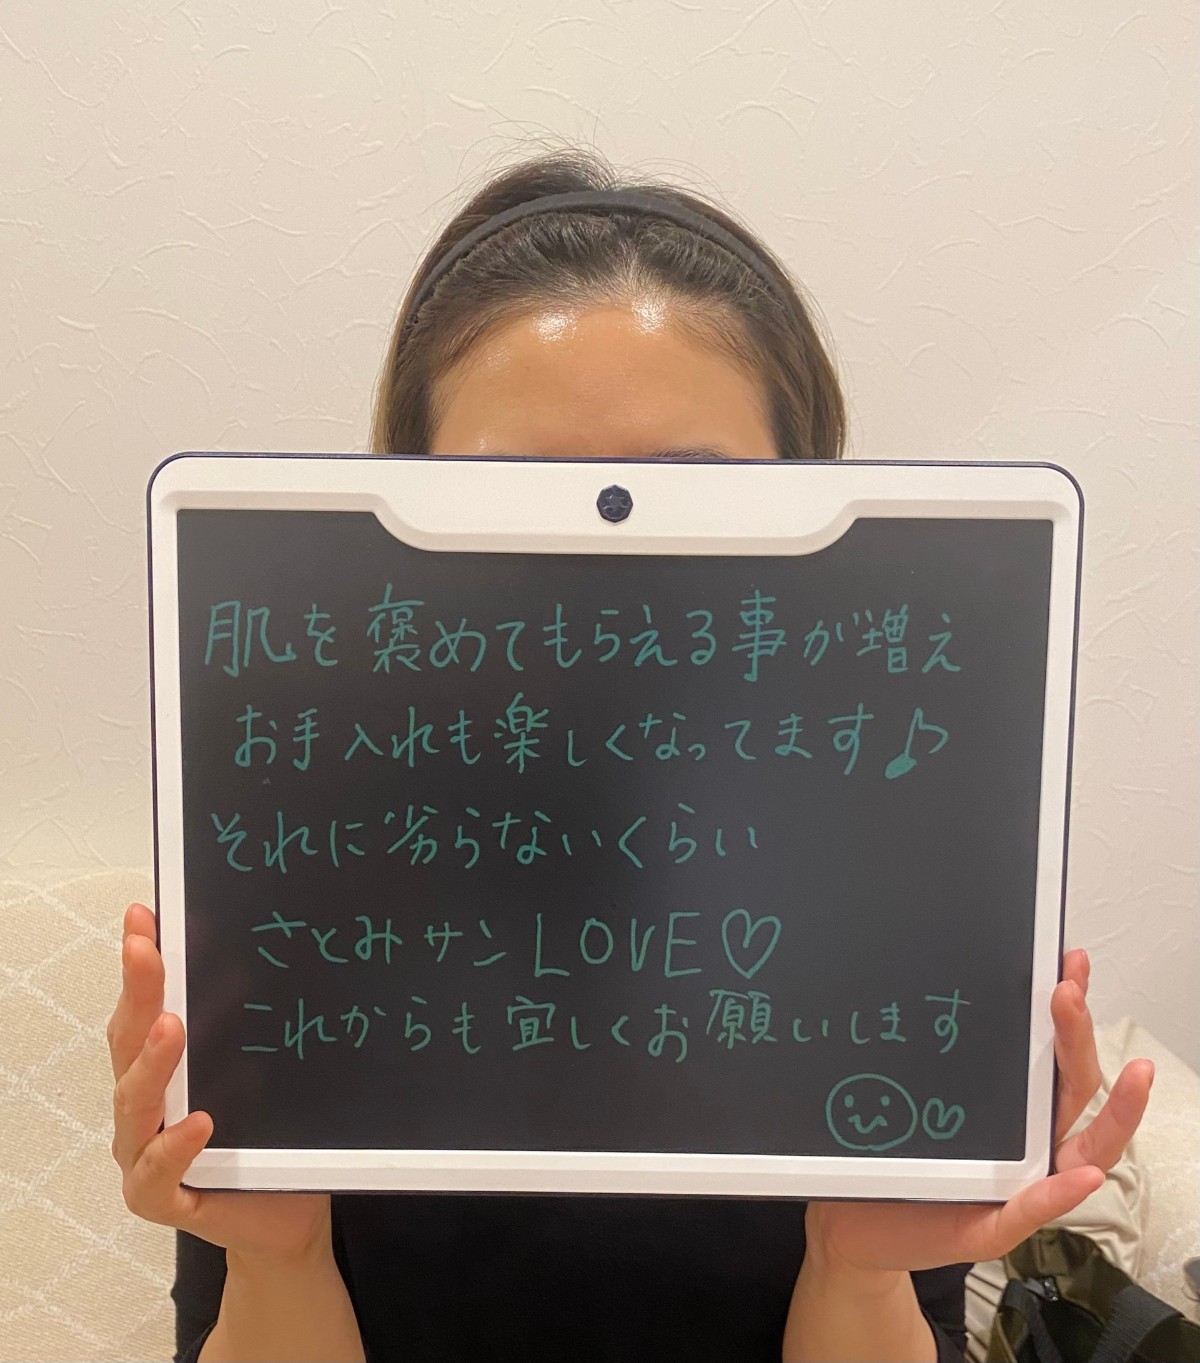 肌を褒めてもらえる事が増え
お手入れも楽しくなってます♪
それに劣らないくらい
さとみサンLOVE♡
これからも宜しくお願いします